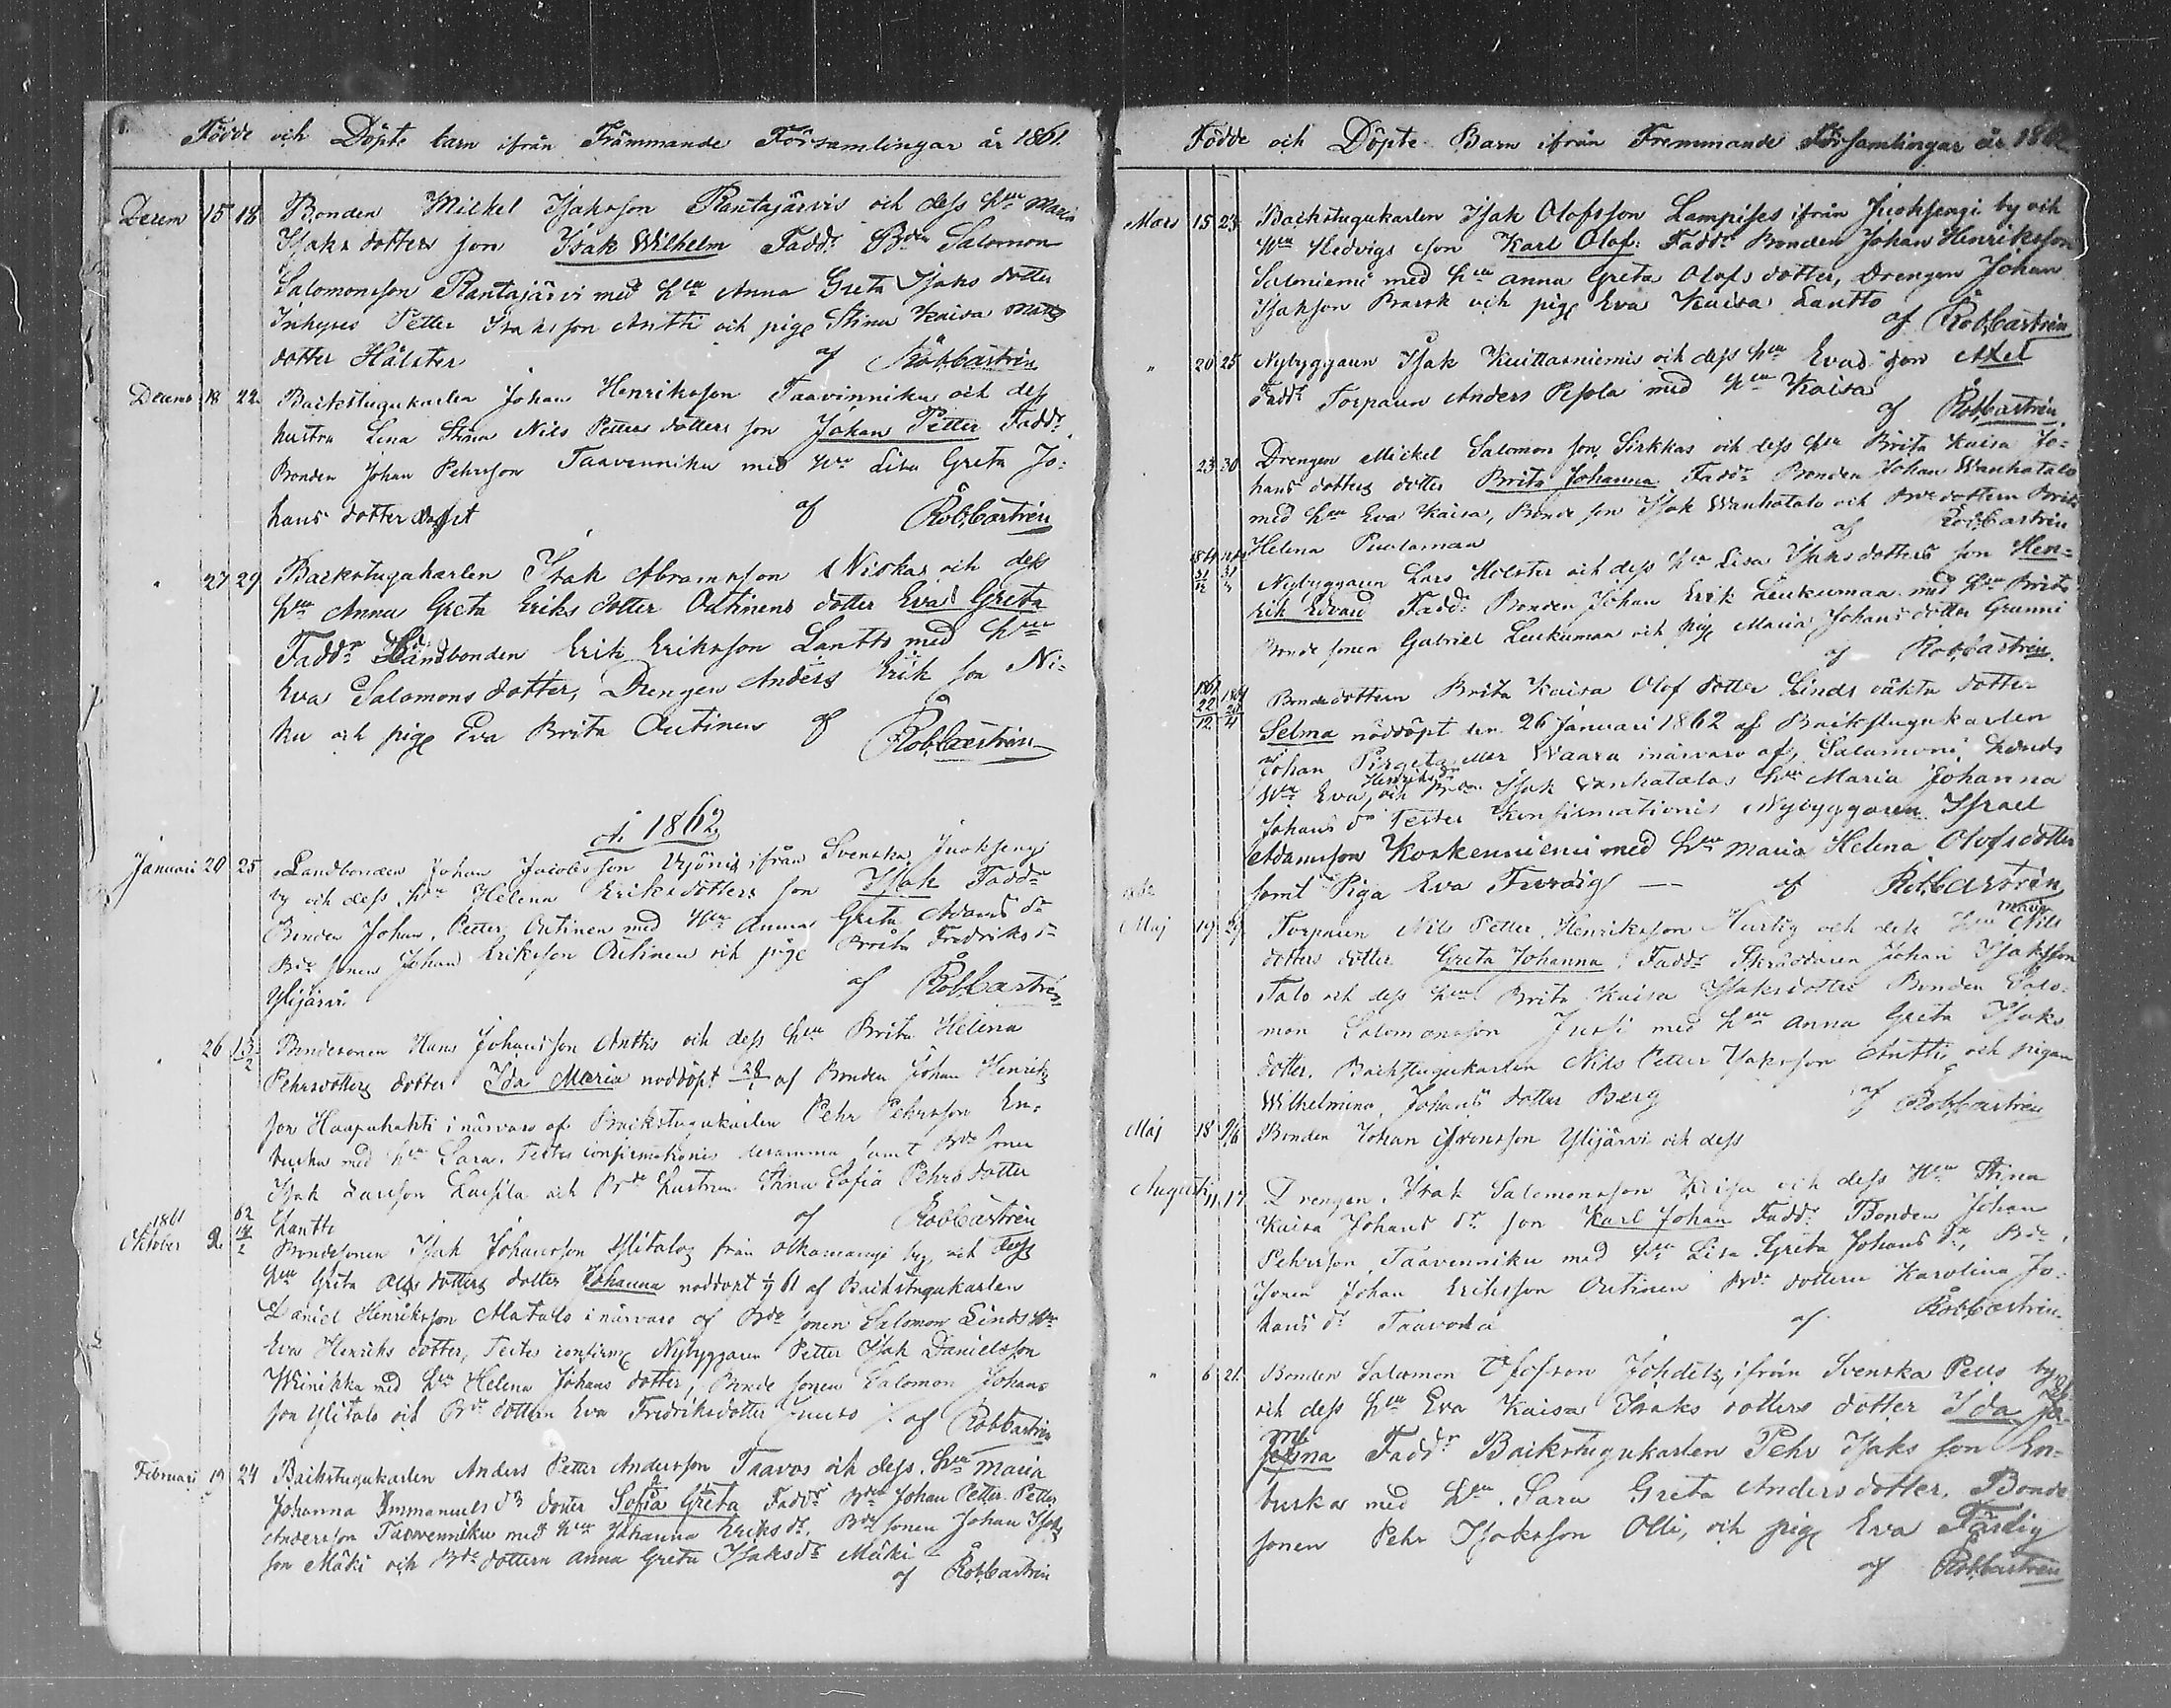 Födde och Döpte barn ifrån Främmande Församlingar år 1861.
Decem 15 18 Bonden Mickel Isaksson Rantajärvis och dess hru Maria
Isaks dotters son Isak Wilhelm Faddr Bden Salomon
Salomonsson Rantajärvi med hru Anna Greta Isaks dotter
Inhyses Petter Isaksson Antti och pig Stina Kaisa Matts
dotter Hälster af RobCastrén
Decemb 18 22 Backstugukarlen Johan Henriksson Taavinniku och dess
hustru Lena Stina Nils Petters dotters son Johan Petter Faddr
Bonden Johan Pehrsson Taavenniku med hru Lisa Greta Jo:
hans dotter af RobCastrén
" 27 29 Backstugukarlen Isak Abramsson Niskas och dess
hru Anna Greta Eriks dotter Outinens dotter Eva Greta
Faddr Landbonden Erik Eriksson Lantto med hru
Eva Salomons dotter, Drengen Anders Erik son Ni:
ku och pig Eva Brita Outinen af RobCastrén
A 1862
Januari 20 25 Landbonden Johan Jacobsson ifrån Svenska Juoksengi
by och dess hru Helena Eriksdotters son Isak Faddr
Bonden Johan Petter Outinen med hru Anna Greta Adams dr
Bde sonen Johan Eriksson Outinen och pige Brita Fredriks dr
Ylijärvi af RobCastrén
" 26 13/2 Bondesonen Hans Johansson Anttis och dess hru Brita Helena
Pehrsdotters dotter Ida Maria nöddöpt 28 af Bonden Johan Henriks
son Haapalahti i närvaro af Backstugukarlen Pehr Pehrsson En:
buska med hru Sara. Testes confirmationis desamma samt Bde sonen
Isak Larsson och Bde hustrun Stina Sofia Pehrs dotter
Lantto af RobCastrén
1861 Oktober 2 62 14/2 Bondesonen Isak Johansson Ylitalos från by och dess
hru Greta dotters dotter Johanna nöddöpt 61 af Backstugukarlen
Daniel Henriksson Matalo i närvaro af Bde sonen Salomon Linds hru
Eva Henriks dotter, Testes confirm Nybyggaren Petter Isak Danielsson
Weinikka med hru Helena Johans dotter, Bonde sonen Salomon Johans
son Ylitalo och Bde dottern Eva Fredriksdotter Juuso af RobCastrén
Februari 19 24 Backstugukarlen Anders Petter Andersson Taavos och dess hru Maria
Johanna Immanuels drs dotter Sofia Greta Faddr Bden Johan Petter Petter
Andersson Taavenniku med hru Johanna Eriks dr. Bde sonen Johan Isaks
son Mäki och Bde dottern Anna Greta Isaks dr Mäki
af RobCastrén
Födde och Döpte Barn ifrån Fremmande Församlingar år 1862
Mars 15 23 Backstugukarlen Isak Olofsson Lampises ifrån Juoksengi by och
hru Hedvigs son Karl Olof: Faddr Bonden Johan Henriksson
Saloniemi med hru Anna Greta Olofs dotter, Drengen Johan
Isakson och pig Eva Kaisa Lantto
af RobCastrén
" 20 25 Nybyggaren Isak Kuittasniemis och dess hru Evas son Axel
Faddr Torparen Anders Pesola med hru Kaisa
af RobCastrén
23 30 Drengen Mickel Salomon son Sirkkas och dess hru Brita Kaisa Jo:
hans dotters dotter Brita Johanna Faddr Bonden Johan Wanhatalo
med hru Eva Kaisa, Bonde son Isak Wanhatalo och Bde dottern Brita
Helena af RobCastrén
Nybyggaren Lars Hölster och dess hru Lisa Isaksdotters son Hen:
rik Edvard Faddr Bonden Johan Erik Leukumaa med hru Brita
Bonde sonen Gabriel Leukumaa och pig Maria Johans dotter Grunni
af RobCastrén
22/12 Bondedottern Brita Kaisa Olof dotter Linds oäkta dotter
Selma nöddöpt den 26 Januari 1862 af Backstugukarlen
Johan eller Waara i närvaro af Salomoni Linds
hru Eva Henriks dr och Bden Isak Wanhatalos hru Maria Johanna
Johans dr Testes Konfirmationis Nybyggaren Israel
Adamsson Koskenniemi med hru Maria Helena Olofsdotter
samt Piga Eva — af RobCastrén
1862
Maj 19 29 Torparen Nils Petter Henriksson Hurtig och dess hru Maria Nils
dotters dotter Greta Johanna. Faddr Skräddaren Johan Isaksson
Talo och dess hru Brita Kaisa Isaksdotter Bonden Salo:
mon Salomonsson Jussi med hru Anna Greta Isaks
dotter. Backstugukarlen Nils Petter Isaksson Antti och pigan
Wilhelmina Johans dotter Berg af RobCastrén
Maj 18 26 Bonden Johan Ylijärvi och dess
Augusti 11 17 Drengen Isak Salomonsson och dess hru Stina
Kaisa Johans drs son Karl Johan Faddr Bonden Johan
Pehrsson Taavenniku med hru Lisa Greta Johans dr, Bde
sonen Johan Eriksson Outinen Bde dottern Karolina Jo:
hans dr Taavola af RobCastrén
" 6 21 Bonden Salomon Olofsson ifrån Svenska Pello by
och dess hru Eva Kaisa Isaks dotters dotter Ida
Faddr Backstugukarlen Pehr Isaks son En-
buska med hru Sara Greta Anders dotter. Bonde
sonen Pehr Isaksson Olli, och pig Eva Färdig
af RobCastrén